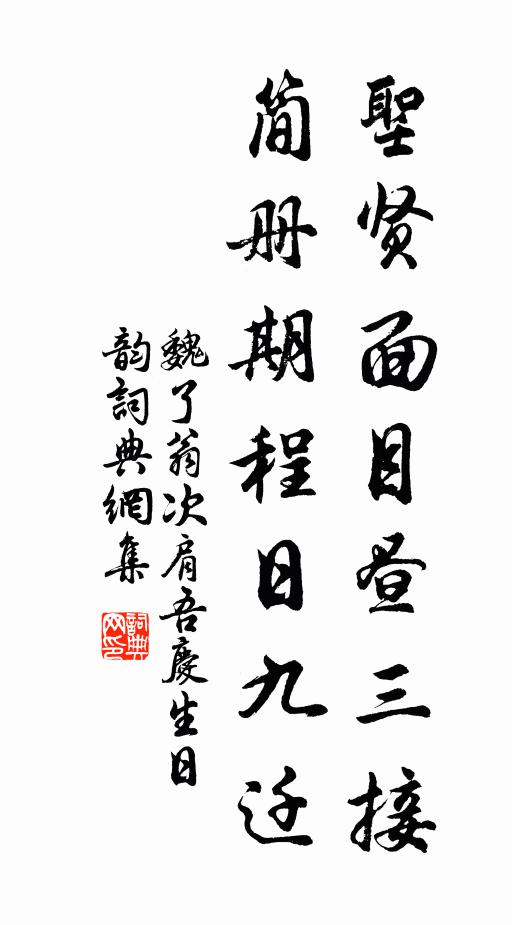 聖贤面目昼三接
简册期程日九迁
魏了翁次肩吾慶生日
韵詞典網集
詞典网印